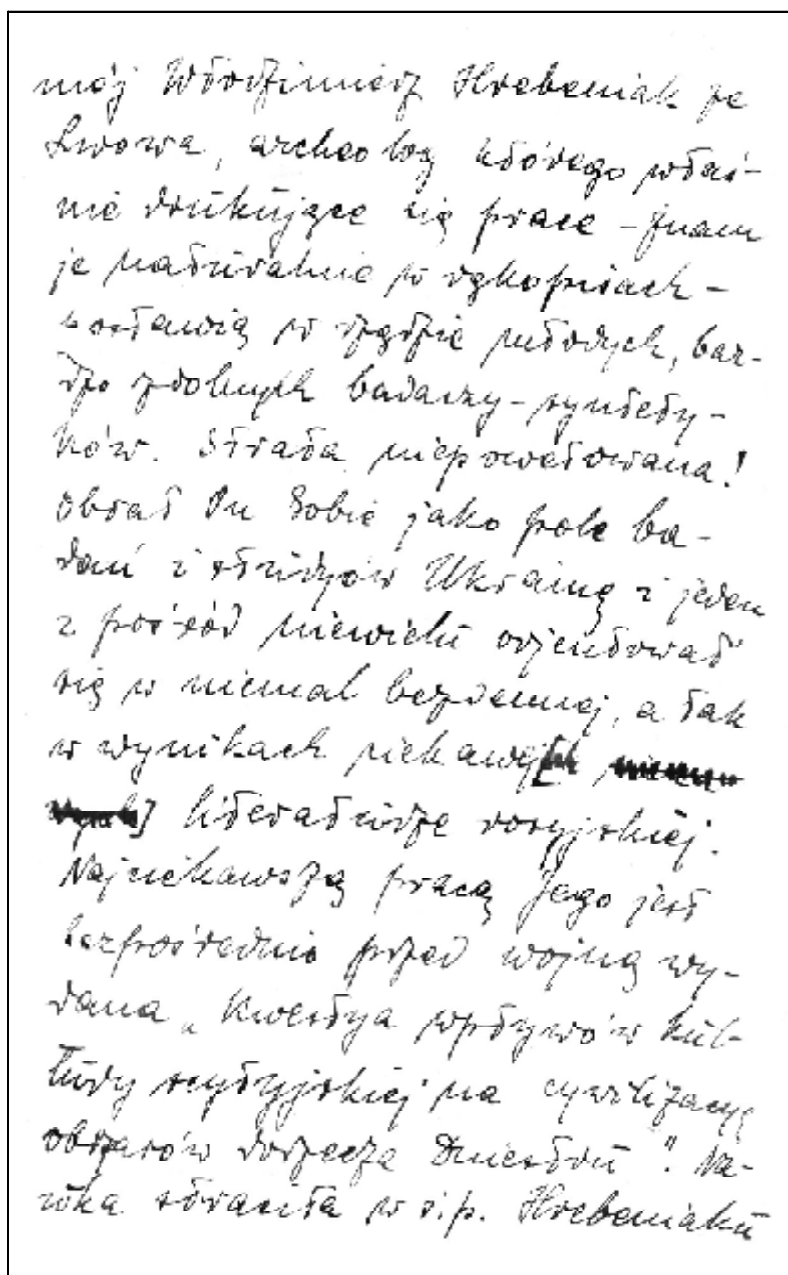 mój Włodzimierz Hrebeniak ze
Lwowa, archeolog którego właś-
nie drukujące się prace – znam
je naturalnie w rękopisach –
postawią w rzędzie młodych, bar-
dzo zdolnych badaczy-syntety-
ków. Strata niepowetowana!
Obrał On Sobie jako pole ba-
dań i studyów Ukrainę i jeden
z pośród niewielu orjentował
się w niemal bezdennej, a tak
w wynikach ciekawej
literaturze rosyjskiej.
Najciekawszą pracą Jego jest
bezpośrednio przed wojną wy-
dana „Kwestya wpływów kul-
tury scytyjskiej na cywilizacyę
obszarów dorzecza Dniestru". Na-
uka straciła w ś.p. Hrebeniaku